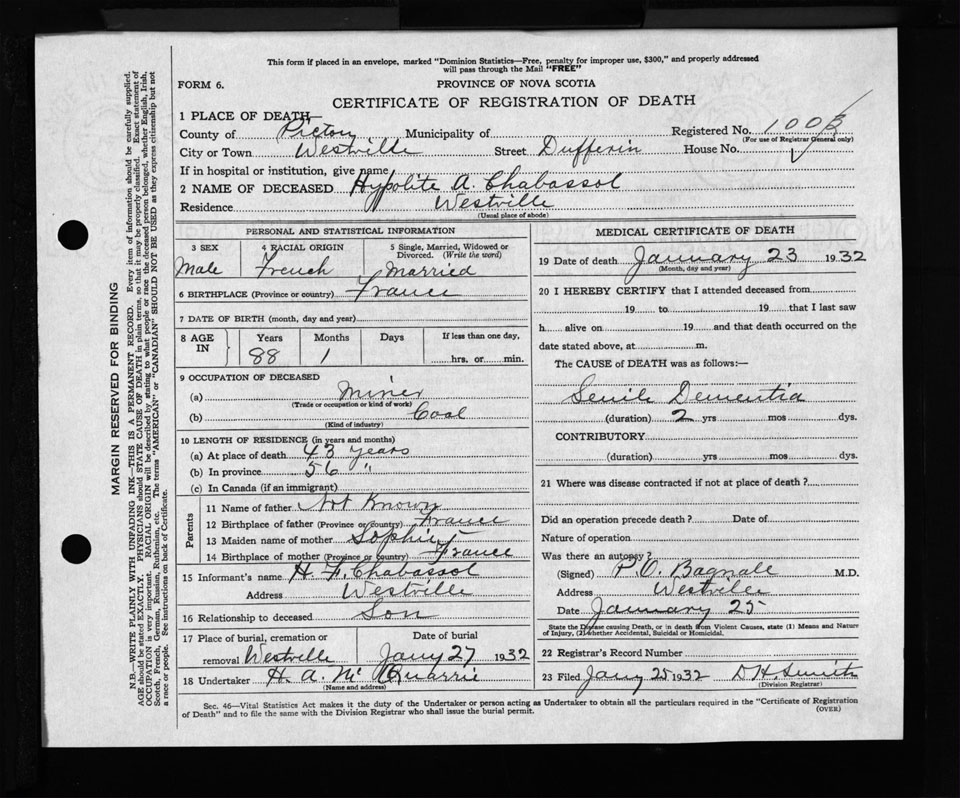 This form if placed in an envelope, marked "Dominion Statistics—Free, penalty for improper use, $300," and properly addressed
will pass through the Mail "FREE"
FORM 6.
PROVINCE OF NOVA SCOTIA
CERTIFICATE OF REGISTRATION OF DEATH
1 PLACE OF DEATH
County of Pictou Municipality of Registered No. 100
(For use of Registrar General only)
City or Town Westville Street Dufferin House No.
If in hospital or institution, give name
2 NAME OF DECEASED Hypolite A. Chabassol
Residence Westville
(Usual place of abode)
PERSONAL AND STATISTICAL INFORMATION
3 SEX 4 RACIAL ORIGIN 5 Single, Married, Widowed or
Divorced. (Write the word)
Male French Married
6 BIRTHPLACE (Province or country) France
7 DATE OF BIRTH (month, day and year)
8 AGE IN Years Months Days If less than one day,
88 1 hrs. or min.
9 OCCUPATION OF DECEASED
(a) Miner
(Trade or occupation or kind of work)
(b) Coal
(Kind of industry)
10 LENGTH OF RESIDENCE (in years and months)
(a) At place of death 43 years
(b) In province 56 "
(c) In Canada (if an immigrant)
Parents
11 Name of father Not Known
12 Birthplace of father (Province or country) France
13 Maiden name of mother Sophie
14 Birthplace of mother (Province or country) France
15 Informant's name H. F. Chabassol
Address Westville
16 Relationship to deceased Son
17 Place of burial, cremation or Date of burial
removal Westville Jany 27 1932
18 Undertaker H. A. McQuarrie
(Name and address)
MEDICAL CERTIFICATE OF DEATH
19 Date of death January 23 1932
(Month, day and year)
20 I HEREBY CERTIFY that I attended deceased from
19 to 19 that I last saw
h alive on 19 and that death occurred on the
date stated above, at m.
The CAUSE OF DEATH was as follows:—
Senile Dementia
(duration) 2 yrs mos dys.
CONTRIBUTORY
(duration) yrs mos dys.
21 Where was disease contracted if not at place of death?
Did an operation precede death? Date of
Nature of operation
Was there an autopsy?
(Signed) P. O. Bagnall M.D.
Address Westville
Date January 25
State the Disease causing Death, or in death from Violent Causes, state (1) Means and Nature
of Injury, (2) whether Accidental, Suicidal or Homicidal.
22 Registrar's Record Number
23 Filed Jany 25 1932 D H Smith
(Division Registrar)
Sec. 46—Vital Statistics Act makes it the duty of the Undertaker or person acting as Undertaker to obtain all the particulars required in the "Certificate of Registration
of Death" and to file the same with the Division Registrar who shall issue the burial permit.
(OVER)
MARGIN RESERVED FOR BINDING
N.B.—WRITE PLAINLY WITH UNFADING INK—THIS IS A PERMANENT RECORD. Every item of information should be carefully supplied.
AGE should be stated EXACTLY. PHYSICIANS should STATE CAUSE OF DEATH in plain terms, so that it may be properly classified. Exact statement of
OCCUPATION is very important. RACIAL ORIGIN will be described by stating to what people or race the deceased person belonged, whether English, Irish,
Scotch, French, German, Russian, Ruthenian, etc. The terms "AMERICAN" or "CANADIAN" SHOULD NOT BE USED as they express citizenship but not
a race or people. See instructions on back of Certificate.